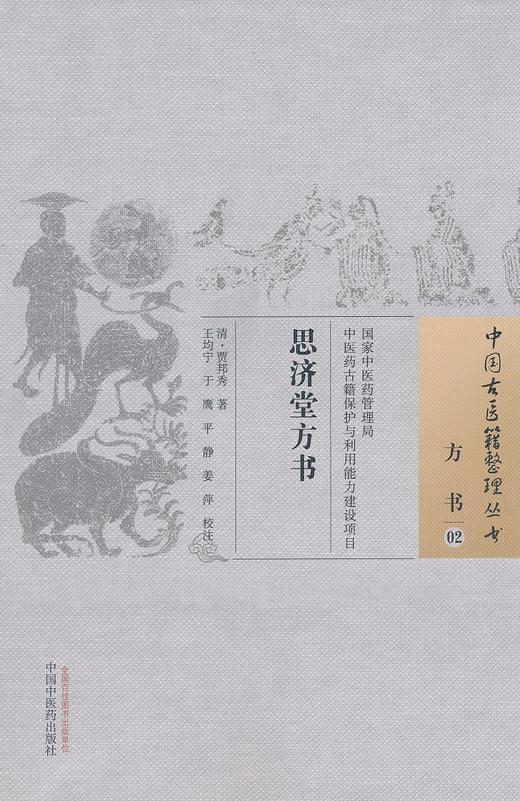 中国古医籍整理丛书
方书
02
国家中医药管理局
中医药古籍保护与利用能力建设项目
思济堂方书
清·贾邦秀 著
王均宁 于鹰 平静 姜萍 校注
全国百佳图书出版单位
中国中医药出版社